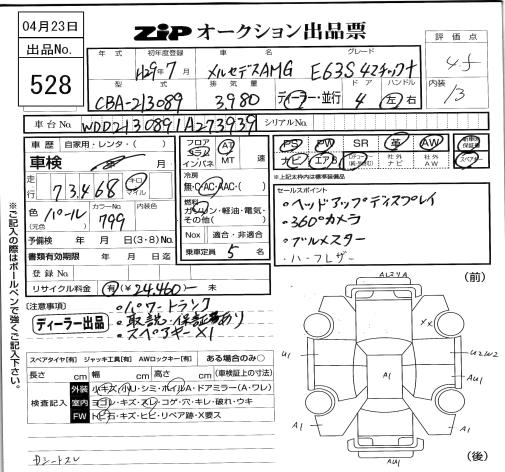 04月23日
ZIP オークション出品票
出品No.
528
評価点
4.5
内装
B
年式 初年度登録 車名 グレード
H29年7月 メルセデスAMG E63S 4マチック+
型式 排気量 ドア ハンドル
CBA-213089 3,980 ディーラー・並行 4 左 右
車台No. WDD2130891A273939 シリアルNo.
車歴 自家用・レンタ・( )
車検 月
走行 73468 キロ マイル
色 パール カラーNo. 799 内装色
(元色)
予備検 年 月 日(3・8)No.
書類有効期限 年 月 日
登録No.
リサイクル料金 有(¥24,460-) 未
フロア コラム インパネ AT MT 速
冷房 無・C・AC・AAC・( )
燃料 ガソリン・軽油・電気・その他( )
Nox 適合・非適合
乗車定員 5 名
PS PW SR 革 AW 新車保証書
ナビ エアB 社外ナビ 社外AW スペアキー
※上記太枠内は標準装備品
セールスポイント
・ヘッドアップディスプレイ
・360°カメラ
・ブルメスター
[注意事項]
ディーラー出品
・パワートランク
・取説・保証書あり
・スペアキー×1
※ご記入の際はボールペンで強くご記入下さい。
スペアタイヤ[有] ジャッキ工具[有] AWロックキー[有] ある場合のみ○
長さ cm 幅 cm 高さ cm (車検証上の寸法)
検査記入
外装 小キズ・小U・シミ・ホイルA・ドアミラー(A・ワレ)
室内 ヨゴレ・キズ・スレ・コゲ・穴・キレ・破れ・ウキ
FW トビ石・キズ・ヒビ・リペア跡・X要ス
Dシートスレ
(前)
XX
U1
U2W2
A1
AU1
A1
A1
(後)